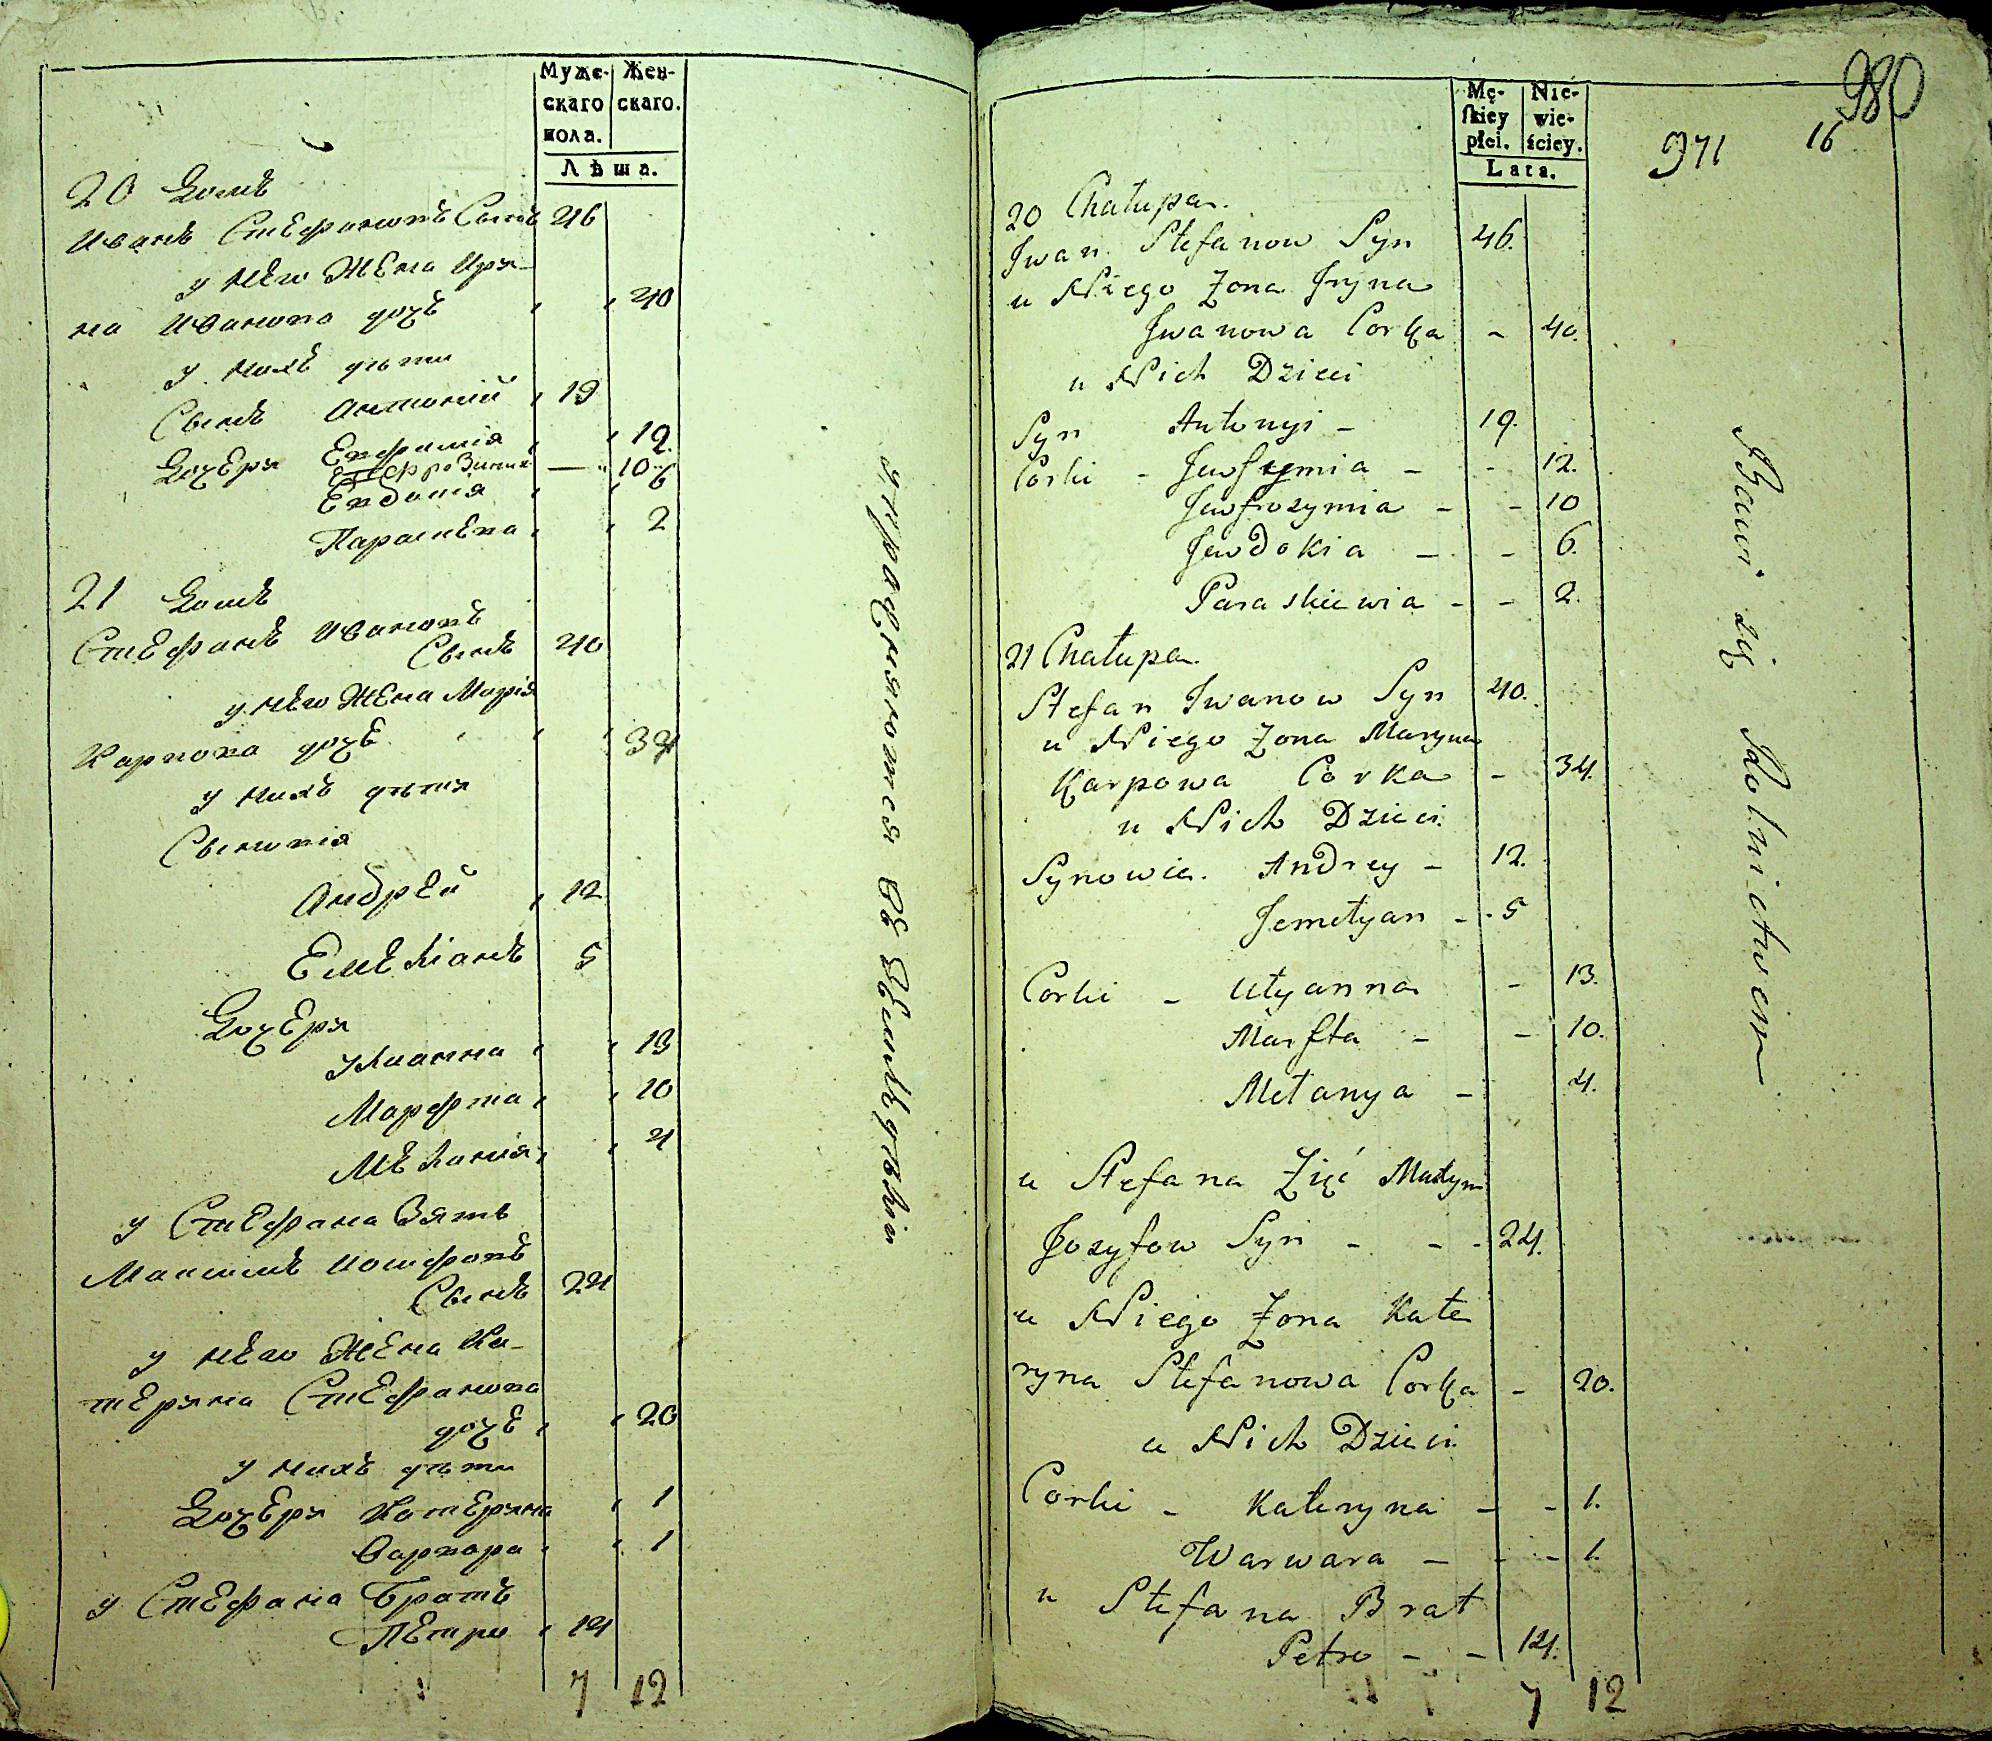 Муже- Жен-
скаго скаго.
пола.
Лѣта.
20 Домъ
Иванъ Стефановъ Сынъ 46
у него Жена Ири-
на Иванова дочь 40
у нихъ дѣти
Сынъ Антоній 19
Дочери Евфимія 12
Евфрозинія 10
Евдокія 6
Параскева 2
21 Домъ
Стефанъ Ивановъ
Сынъ 40
у него Жена Марія
Карпова дочь 34
у нихъ дѣти
Сыновія
Андрей 12
Емеліанъ 5
Дочери
Улианна 13
Марфта 10
Меланія 4
у Стефана Зять
Максимъ Иосифовъ
Сынъ 24
у него Жена Ка-
терина Стефанова
дочь 20
у нихъ дѣти
Дочери Катерина 1
Варвара 1
у Стефана Братъ
Петро 14
7 12
упражняются въ Земледѣліи
980
971 16
Mę- Nie-
skiey wie-
płci. ściey.
Lata.
20 Chałupa.
Jwan Stefanow Syn 46.
u Niego Żona Jryna
Jwanowa Corka - 40.
u Nich Dzieci
Syn Antonyi - 19.
Corki - Jewfymia - - 12.
Jewfrozymia - - 10
Jewdokia - - 6.
Paraskiewia - - 2.
21 Chałupa.
Stefan Iwanow Syn 40.
u Niego Żona Maryna
Karpowa Corka - 34.
u Nich Dzieci.
Synowie. Andrey - 12.
Jemełyan - 5
Corki - Ulyanna - 13.
Marfta - - 10.
Mełanya - 4.
u Stefana Zięć Maxym
Jozyfow Syn - - - 24.
u Niego Żona Kate
ryna Stefanowa Corka - 20.
u Nich Dzieci.
Corki - Kateryna - - 1.
Warwara - - - 1.
u Stefana Brat
Petro - - 14.
7 12
Bawi się Rolnictwem